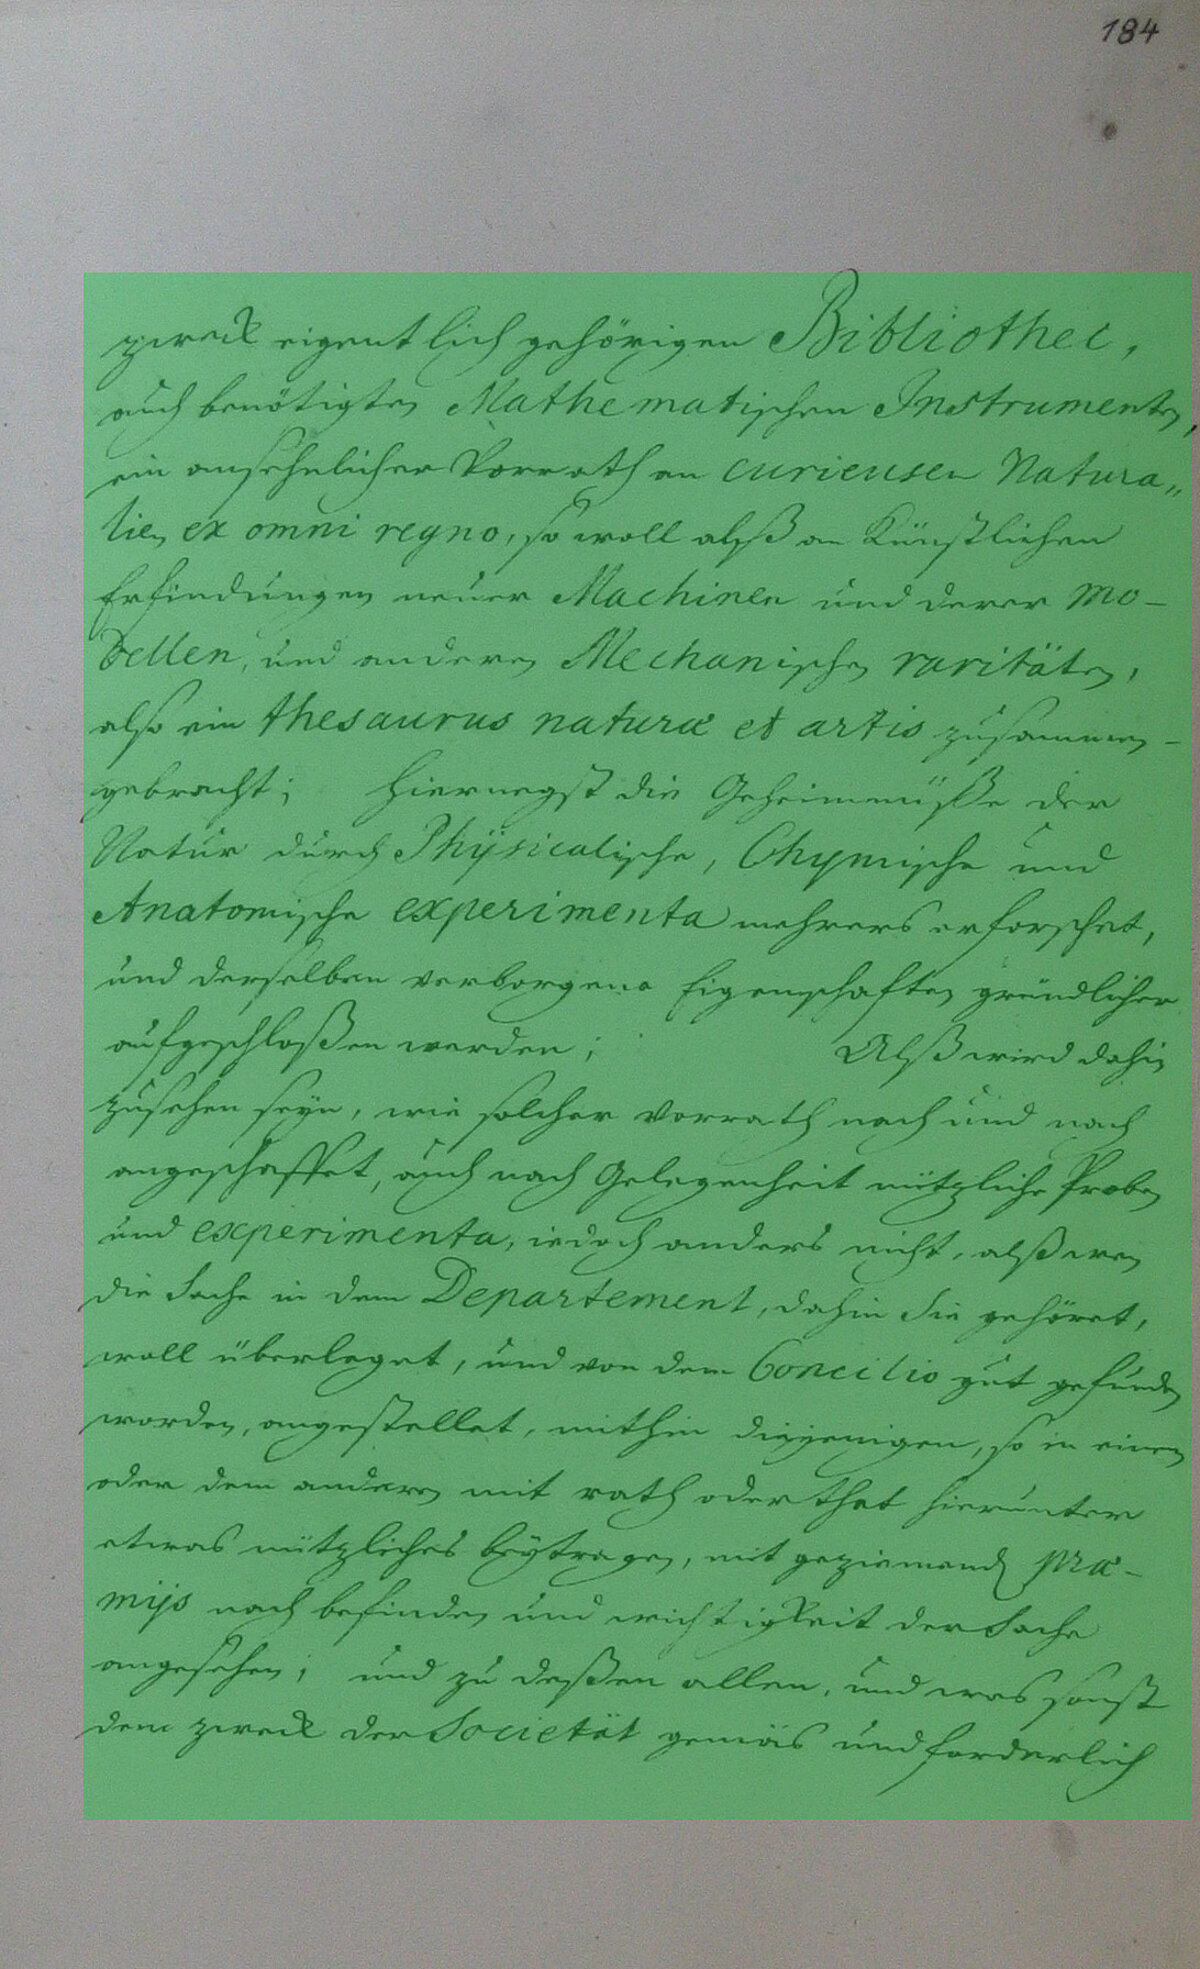 184
zweck eigentlich gehörigen Bibliothec,
auch benötigten Mathematischen Instrumenten,
ein ansehnlicher Vorrath an curieusen Natura„
lien ex omni regno, so woll alß an Künstlichen
Erfindungen neuer Machinen und derer Mo-
dellen, und anderen Mechanischen raritäten,
also ein thesaurus naturæ et artis zusammen-
gebracht; Hiernegst die Geheimnüße der
Natur durch Physicalische, Chymische und
Anatomische experimenta mehrers erforschet,
und derselben verborgene Eigenschafften gründlicher
aufgeschloßen werden; Alß wird dahin
zusehen seyn, wie solcher Vorrath nach und nach
angeschaffet, auch nach Gelegenheit nützliche Proben
und experimenta, iedoch anders nicht, alß wen
die Sache in dem Departement, dahin Sie gehöret,
woll überleget, und von dem Concilio gut gefunden
worden, angestellet, mithin diejenigen, so in einen
oder dem anderen mit rath oder that hierunter
etwas nützliches beytragen, mit geziemend præ-
mijs nach befinden und wichtigkeit der Sache
angesehen; und zu deßen allen, und was sonst
dem zweck der Societät gemäs und forderlich